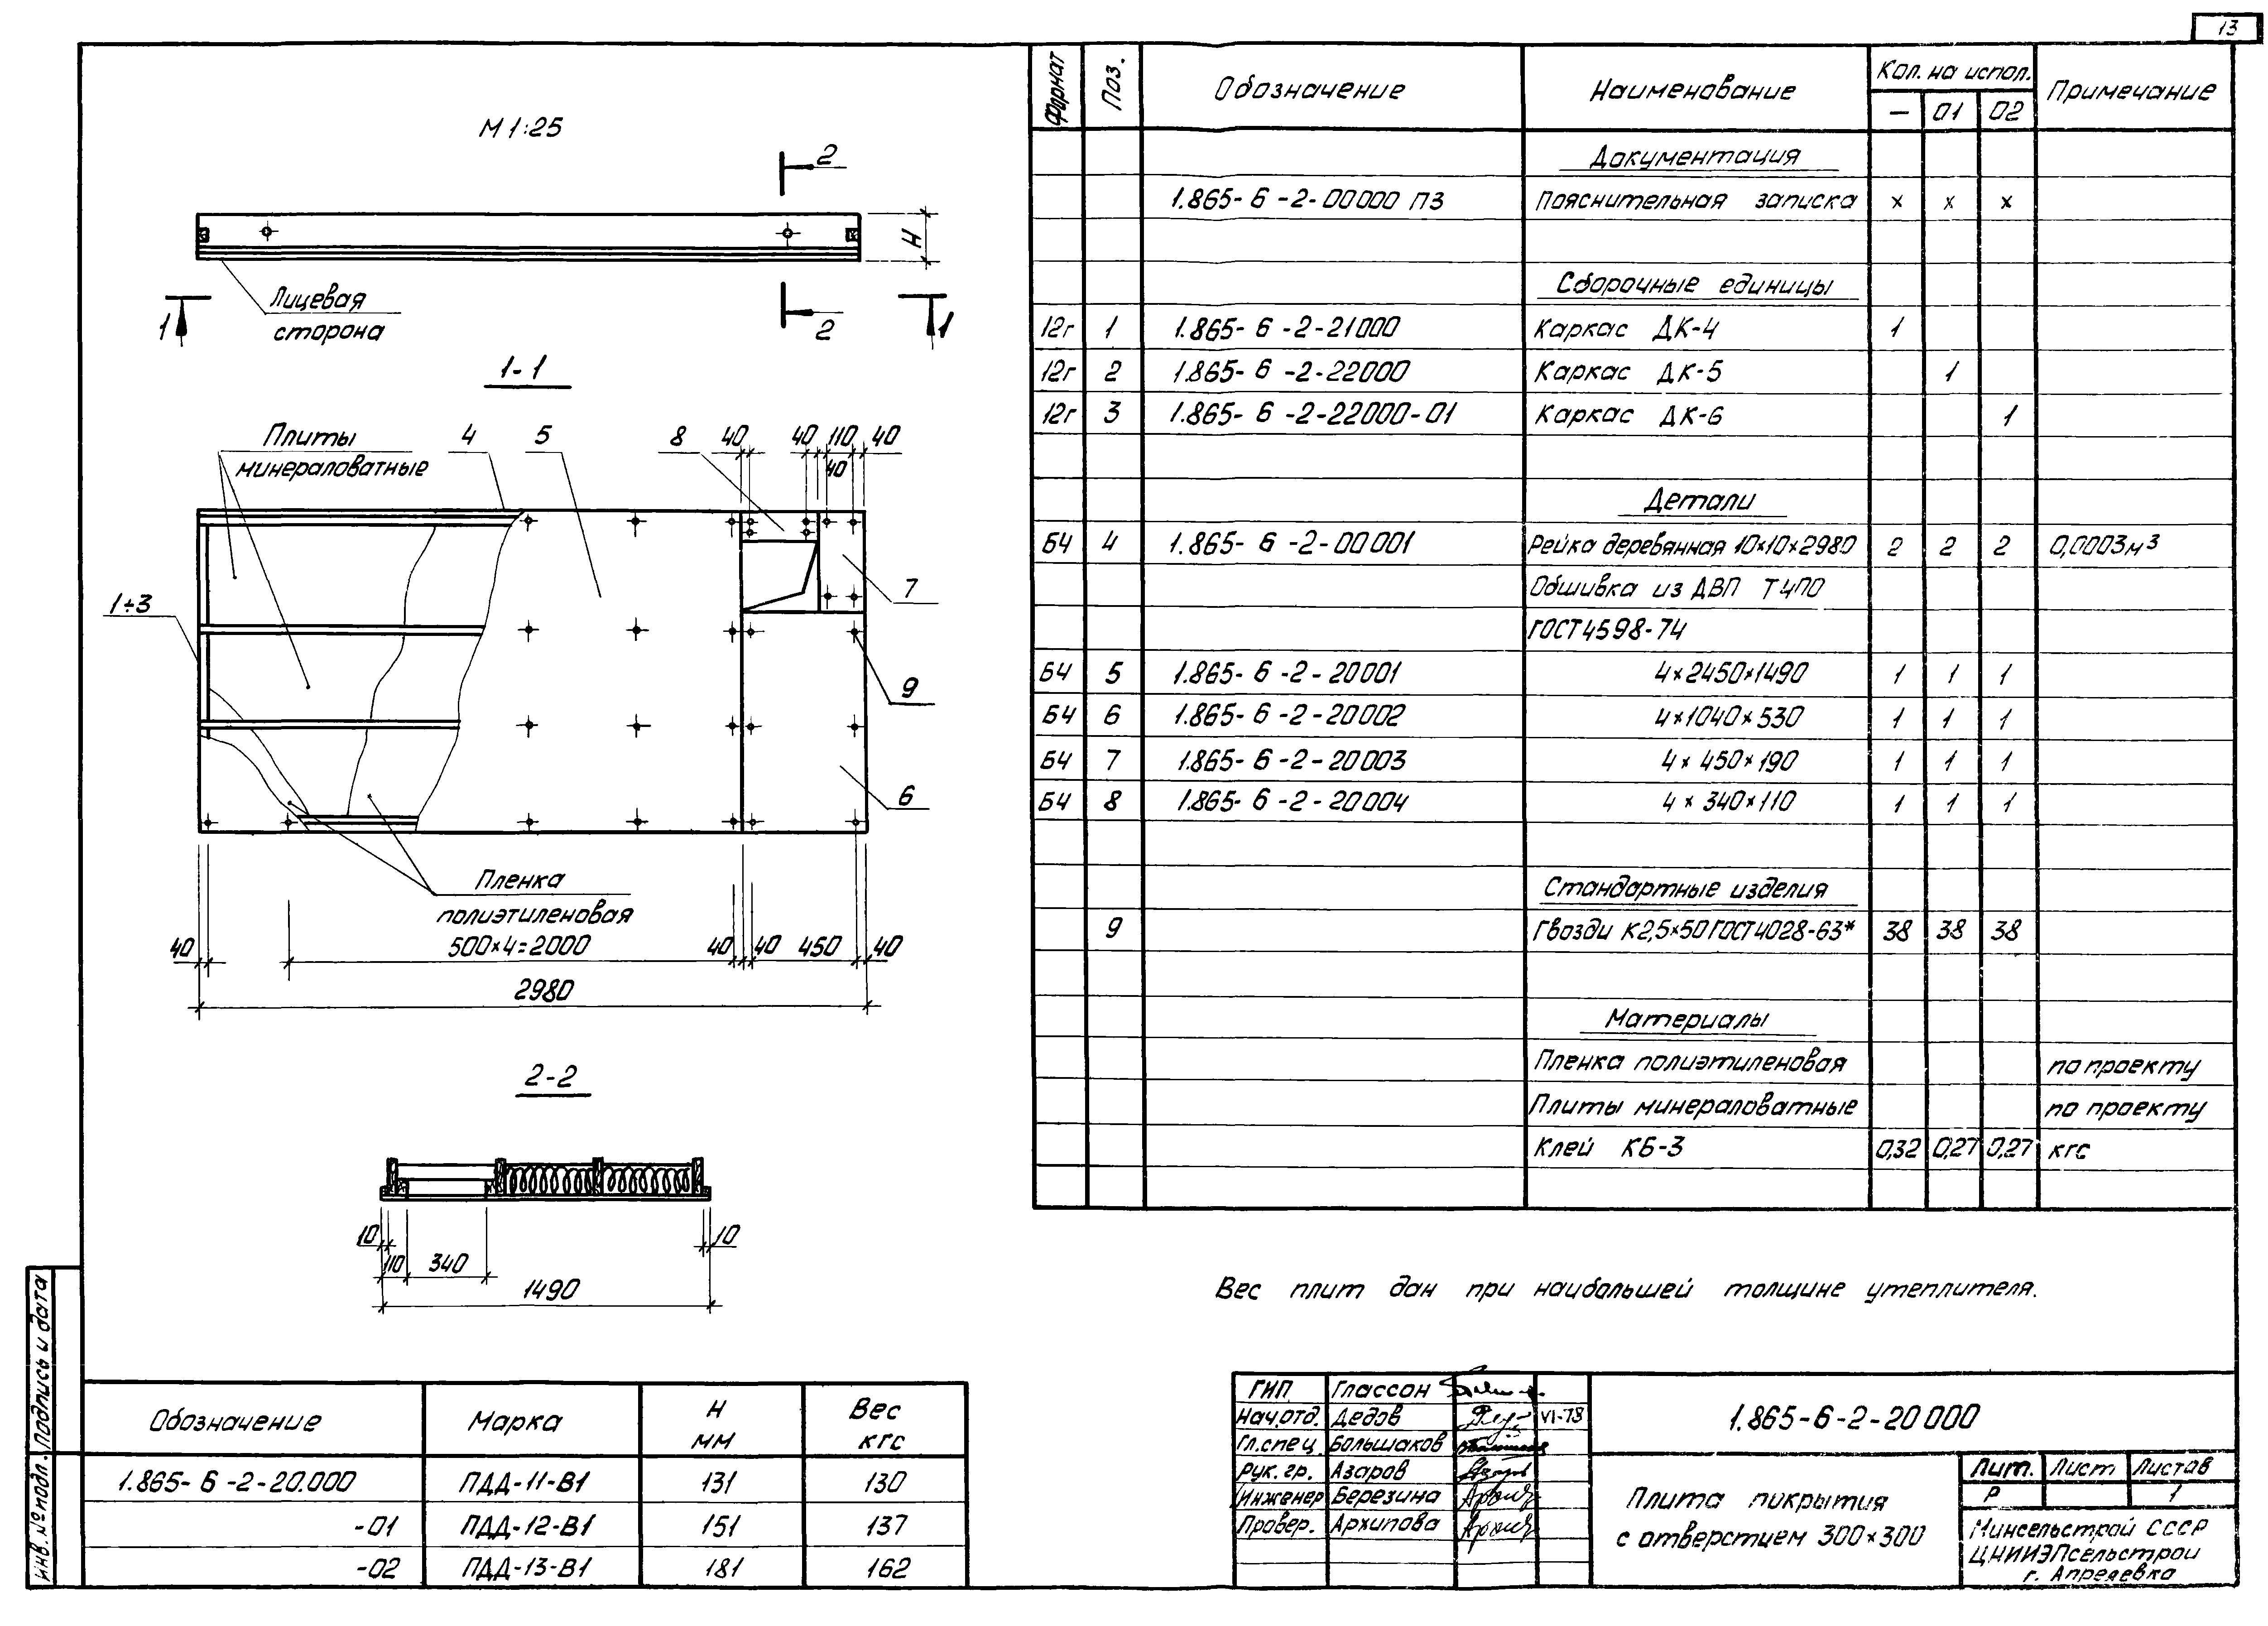 13
М 1:25
2
H
Лицевая
сторона
1
2
1
1-1
Плиты
минераловатные
4
5
8
40
40
110
40
40
1÷3
7
9
6
Пленка
полиэтиленовая
40
500×4=2000
40
40
450
40
2980
2-2
10
10
110
340
1490
Обозначение Марка H мм Вес кгс
1.865-6-2-20.000 ПДД-11-В1 131 130
-01 ПДД-12-В1 151 137
-02 ПДД-13-В1 181 162
Формат Поз. Обозначение Наименование Кол. на испол. Примечание
— 01 02
Документация
1.865-6-2-00000 ПЗ Пояснительная записка × × ×
Сборочные единицы
12г 1 1.865-6-2-21000 Каркас ДК-4 1
12г 2 1.865-6-2-22000 Каркас ДК-5 1
12г 3 1.865-6-2-22000-01 Каркас ДК-6 1
Детали
БЧ 4 1.865-6-2-00001 Рейка деревянная 10×10×2980 2 2 2 0,0003м³
Обшивка из ДВП Т400
ГОСТ 4598-74
БЧ 5 1.865-6-2-20001 4×2450×1490 1 1 1
БЧ 6 1.865-6-2-20002 4×1040×530 1 1 1
БЧ 7 1.865-6-2-20003 4×450×190 1 1 1
БЧ 8 1.865-6-2-20004 4×340×110 1 1 1
Стандартные изделия
9 Гвозди К2,5×50 ГОСТ 4028-63* 38 38 38
Материалы
Пленка полиэтиленовая по проекту
Плиты минераловатные по проекту
Клей КБ-3 0,32 0,27 0,27 кгс
Вес плит дан при наибольшей толщине утеплителя.
ГИП Глассон
Нач.отд. Дедов VI-78
Гл.спец. Большаков
Рук. гр. Азаров
Инженер Березина
Провер. Архипова
1.865-6-2-20000
Плита покрытия
с отверстием 300×300
Лит. Лист Листов
Р 1
Минсельстрой СССР
ЦНИИЭПсельстрой
г. Апрелевка
Инв. № подл. Подпись и дата